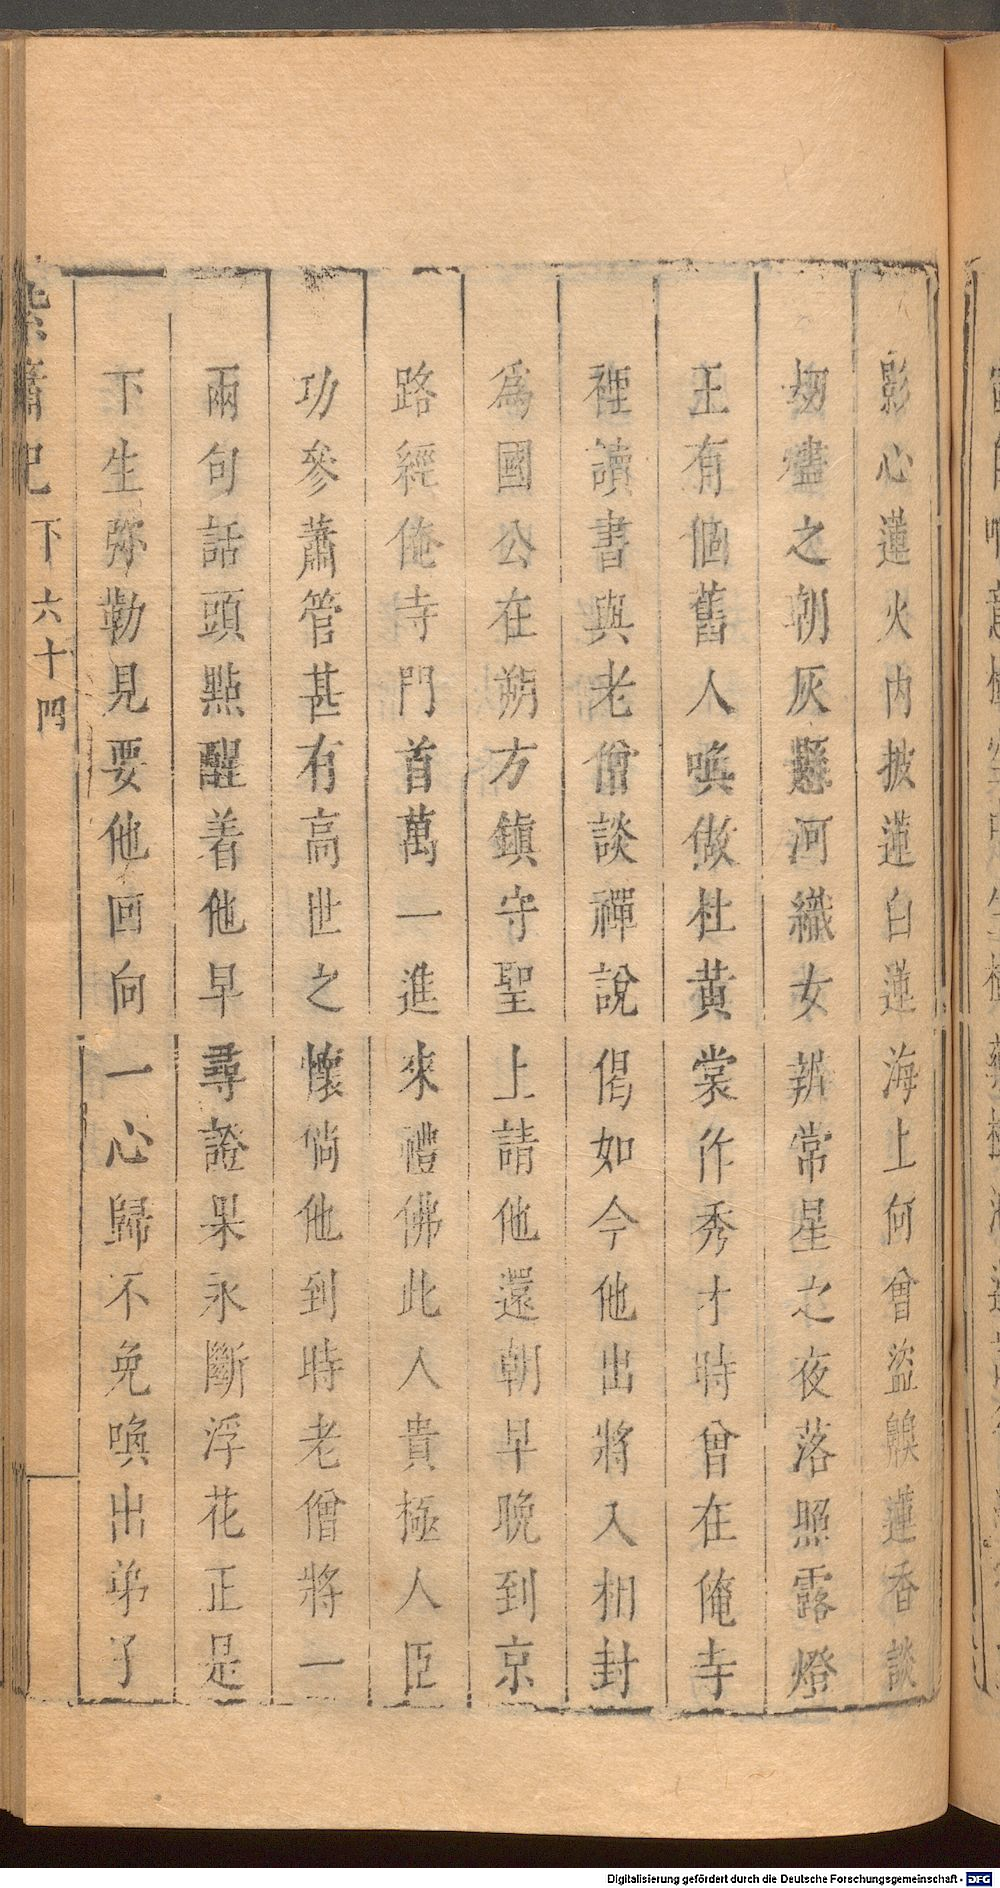 影心蓮火內披蓮白蓮海上何曾盜臭蓮香談
劫燼之朝灰懸河織女辨常星之夜落照露燈
王有個舊人喚做杜黃裳作秀才時曾在俺寺
裡讀書與老僧談禪說偈如今他出將入相封
爲國公在朔方鎮守聖上請他還朝早晚到京
路經俺寺門首萬一進來禮佛此人貴極人臣
功參蕭管甚有高世之懷倘他到時老僧將一
兩句話頭點醒着他早尋證果永斷浮花正是
下生弥勒見要他回向一心歸不免喚出弟子
紫簫記 下 六十四
Digitalisierung gefördert durch die Deutsche Forschungsgemeinschaft - DFG